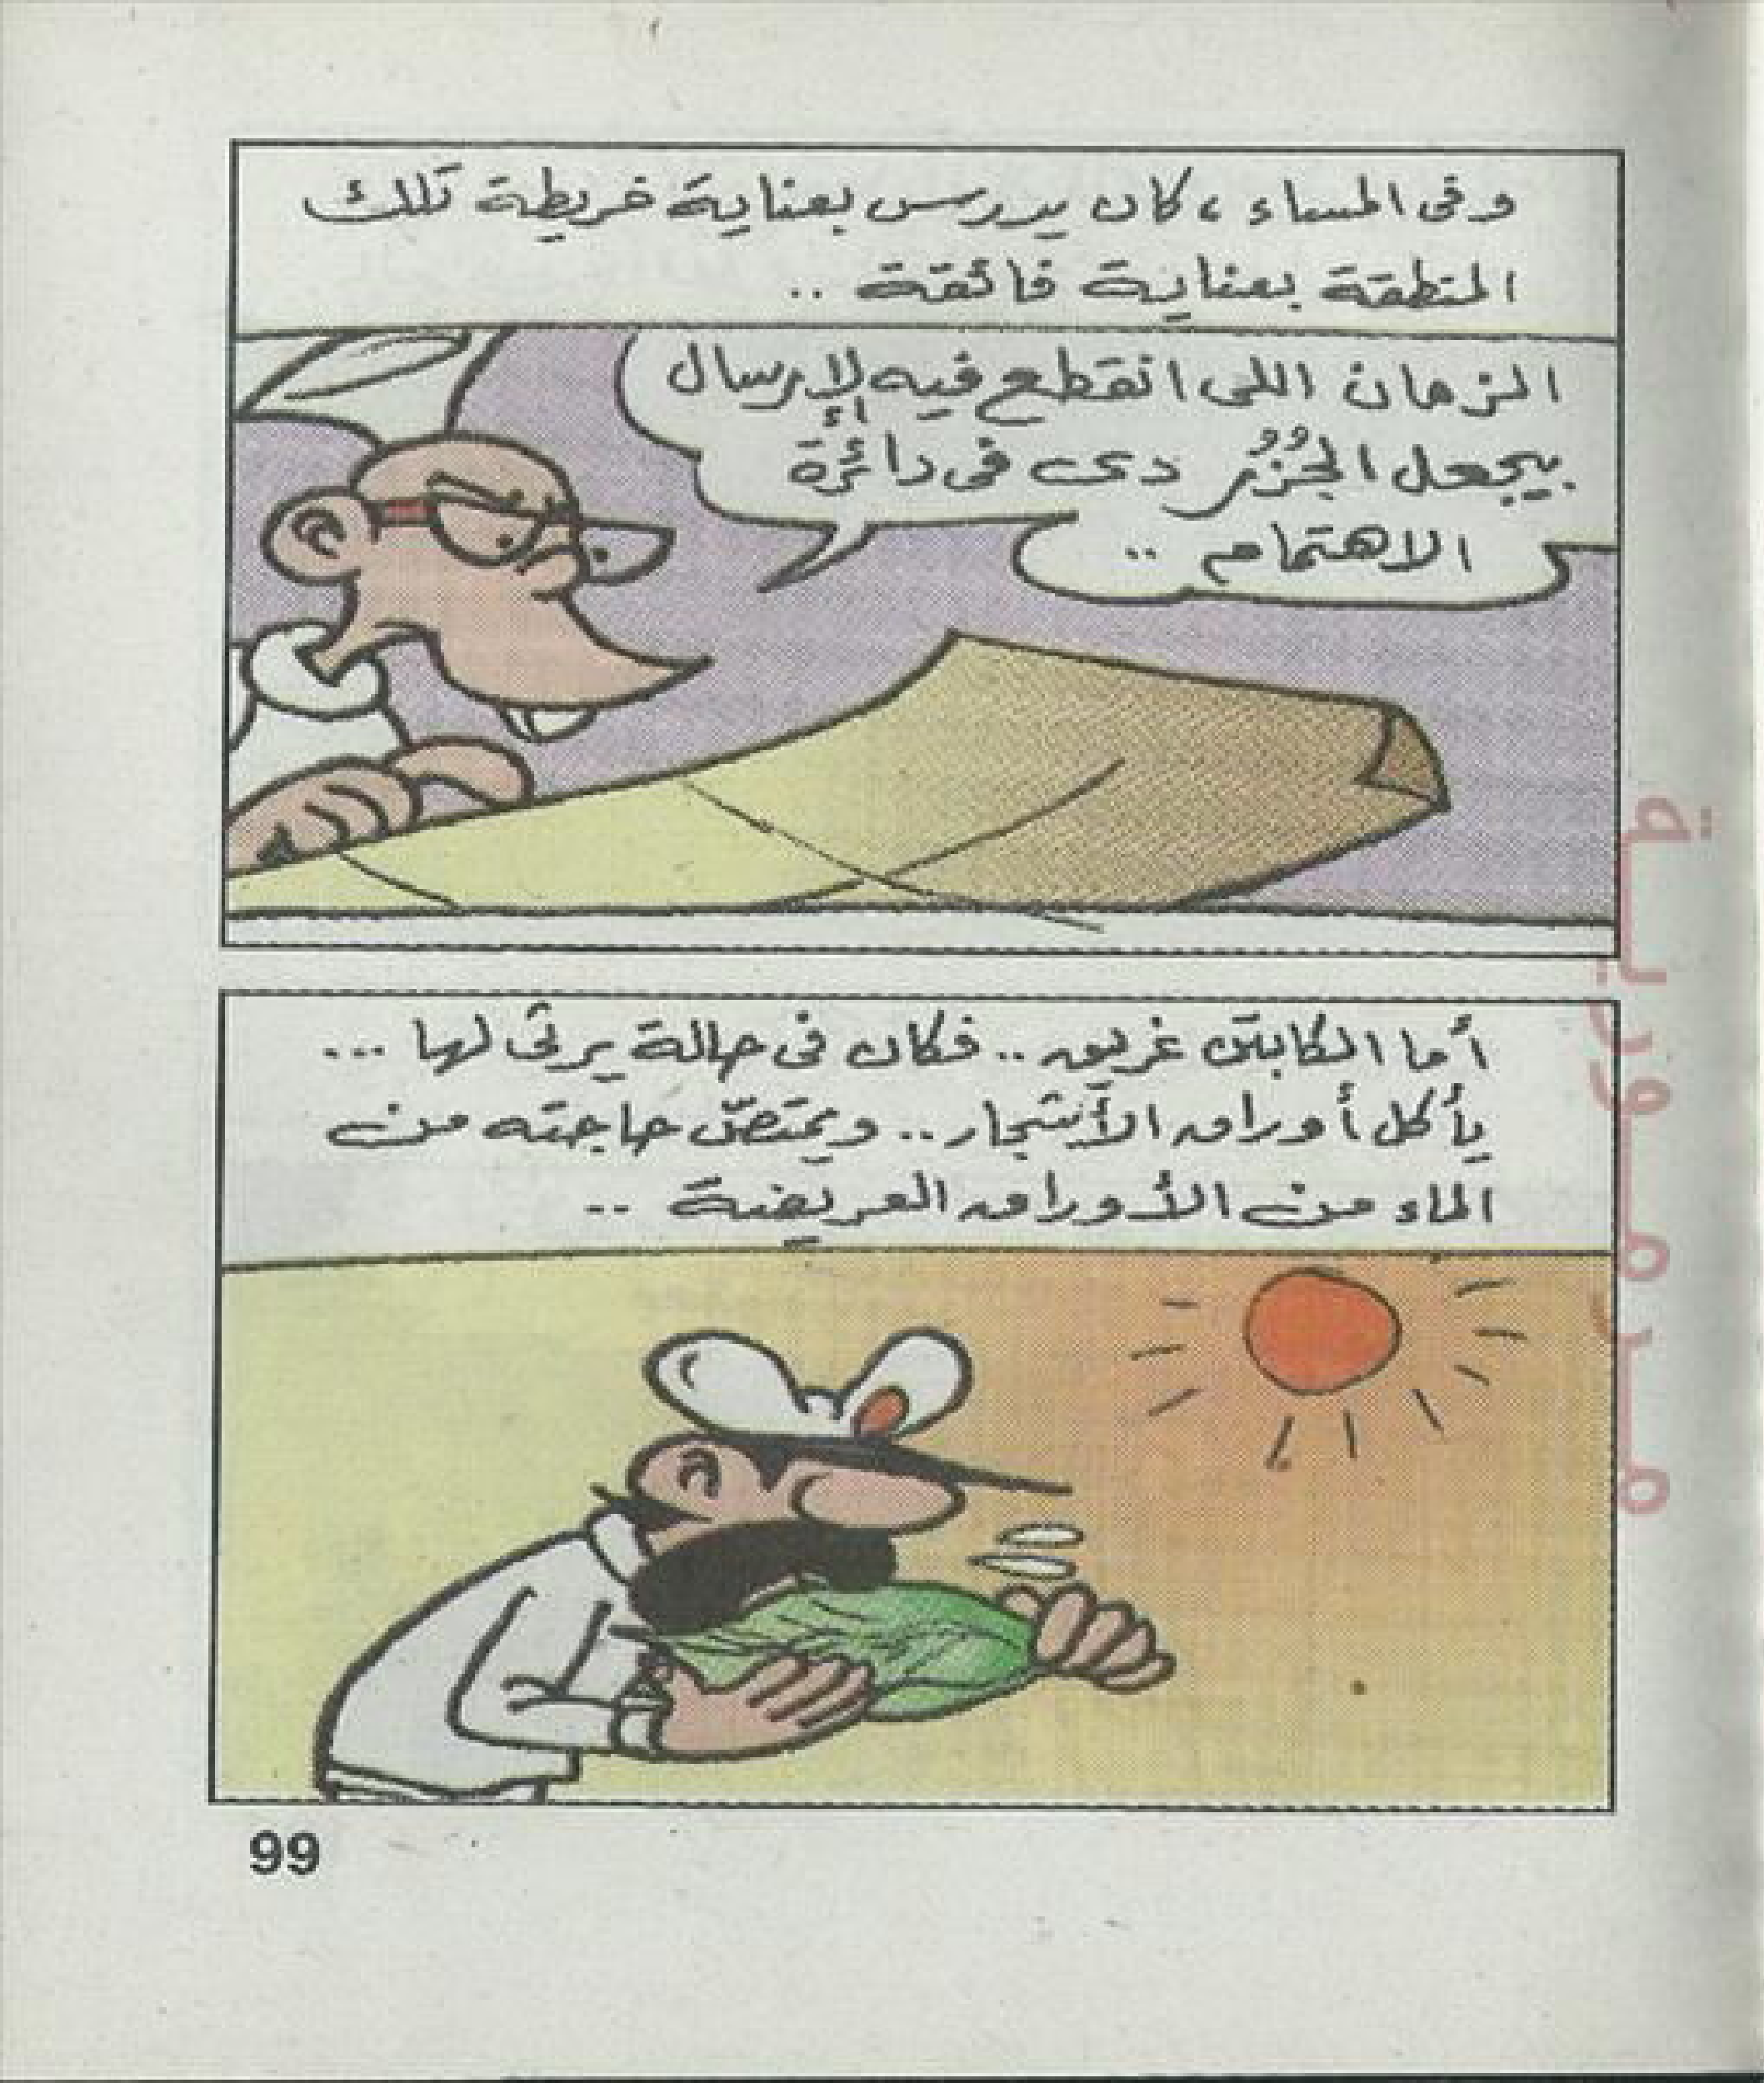 وفى المساء ، كان يدرس بعناية خريطة تلك
المنطقة بعناية فائقة ..
الزمان اللى انقطع فيه الإرسال
بيجعل الجُزُر دى فى دائرة
الاهتمام ..
أما الكابتن غريق .. فكان فى حالة يرثى لها ...
يأكل أوراق الأشجار .. ويمتصّ حاجته من
الماء من الأوراق العريضة ..
99